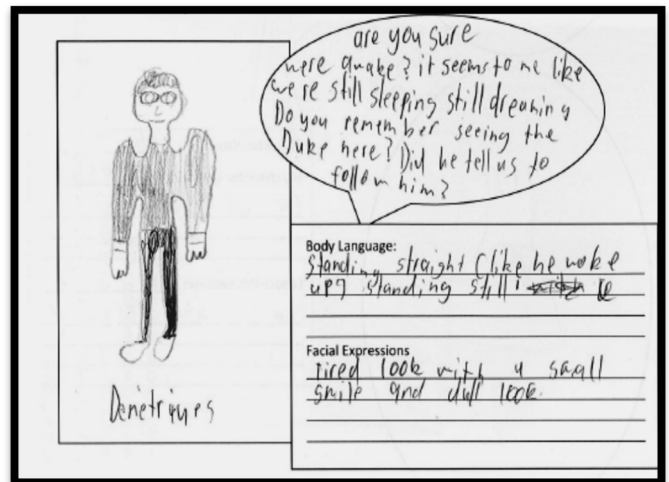 are you sure
were quake? it seems to me like
we're still sleeping still dreaming
Do you remember seeing the
Duke here? Did he tell us to
follow him?
Body Language:
standing straight (like he woke
up) standing still
Facial Expressions
tired look with a small
smile and dull look.
Demetriques